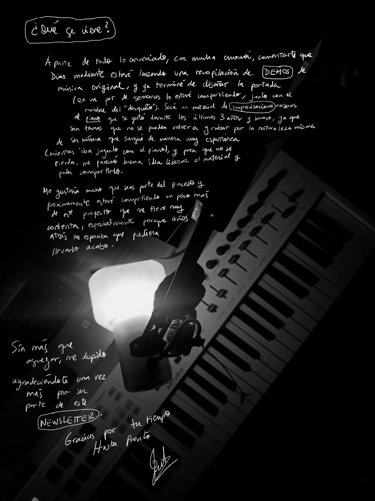 ¿Qué se viene?
Aparte de todo lo anunciado, con mucha emoción, comentarte que
Dios mediante estaré lanzando una recopilación de DEMOS de
música original, y ya terminé de diseñar la portada
(en un par de semanas la estaré compartiendo, junto con el
nombre del "disquito"). Será un material de improvisaciones
al piano que se grabó durante los últimos 3 años y, ya que
son tomas que no se pueden volver a grabar por la naturaleza misma
de ser música que surgió de manera muy espontánea
(mientras iba jugando con el piano), y para que no se
pierda, me pareció buena idea liberar el material y
poder compartirlo.
Me gustaría mucho que seas parte del proceso y
próximamente estaré compartiendo un poco más
de este proyecto que me tiene muy
contenta, especialmente porque años
atrás no esperaba que pudiera
llevarlo a cabo.
Sin más que
agregar, me despido
agradeciéndote una vez
más por ser
parte de este
NEWSLETTER.
Gracias por tu tiempo
Hasta pronto